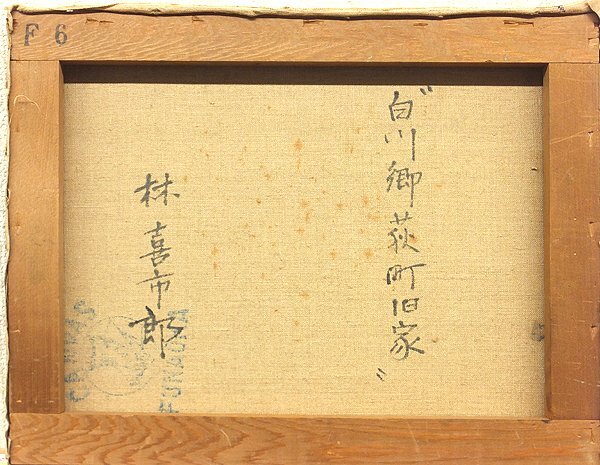 F6
"白川郷荻町旧家"
林喜市郎
FUNAOKA